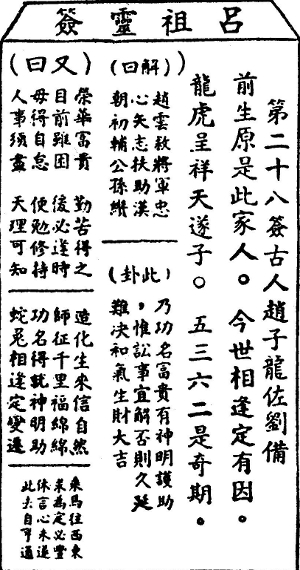 呂祖靈簽
第二十八簽古人趙子龍佐劉備
前生原是此家人。今世相逢定有因。
龍虎呈祥天遂子。五三六二是奇期。
(解曰)
趙雲救將軍忠
心矢志扶助漢
朝初輔公孫纘
(此卦)
乃功名富貴有神明護助
，惟訟事宜解否則久延
難決和氣生財大吉
(又曰)
榮華富貴 勤苦得之
目前雖困 後必逢時
毋得自怠 便勉修持
人事須盡 天理可知
造化生來信自然
師征千里福綿綿
功名得就神明助
蛇兔相逢定變遷
乘馬往西東
求為定必豐
休言心未遂
此去自亨通